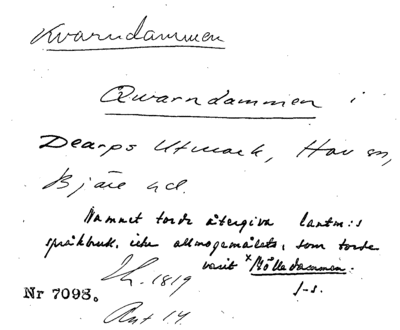 Kvarndammen
Qwarndammen i
Dearps Utmark, Hov sn,
Bjäre hd.
Namnet torde återgiva lantm:s
språkbruk, icke allmogemålets, som torde
varit ˣMölledammen.
1819 J-s.
Nr 7098.
Akt 14.